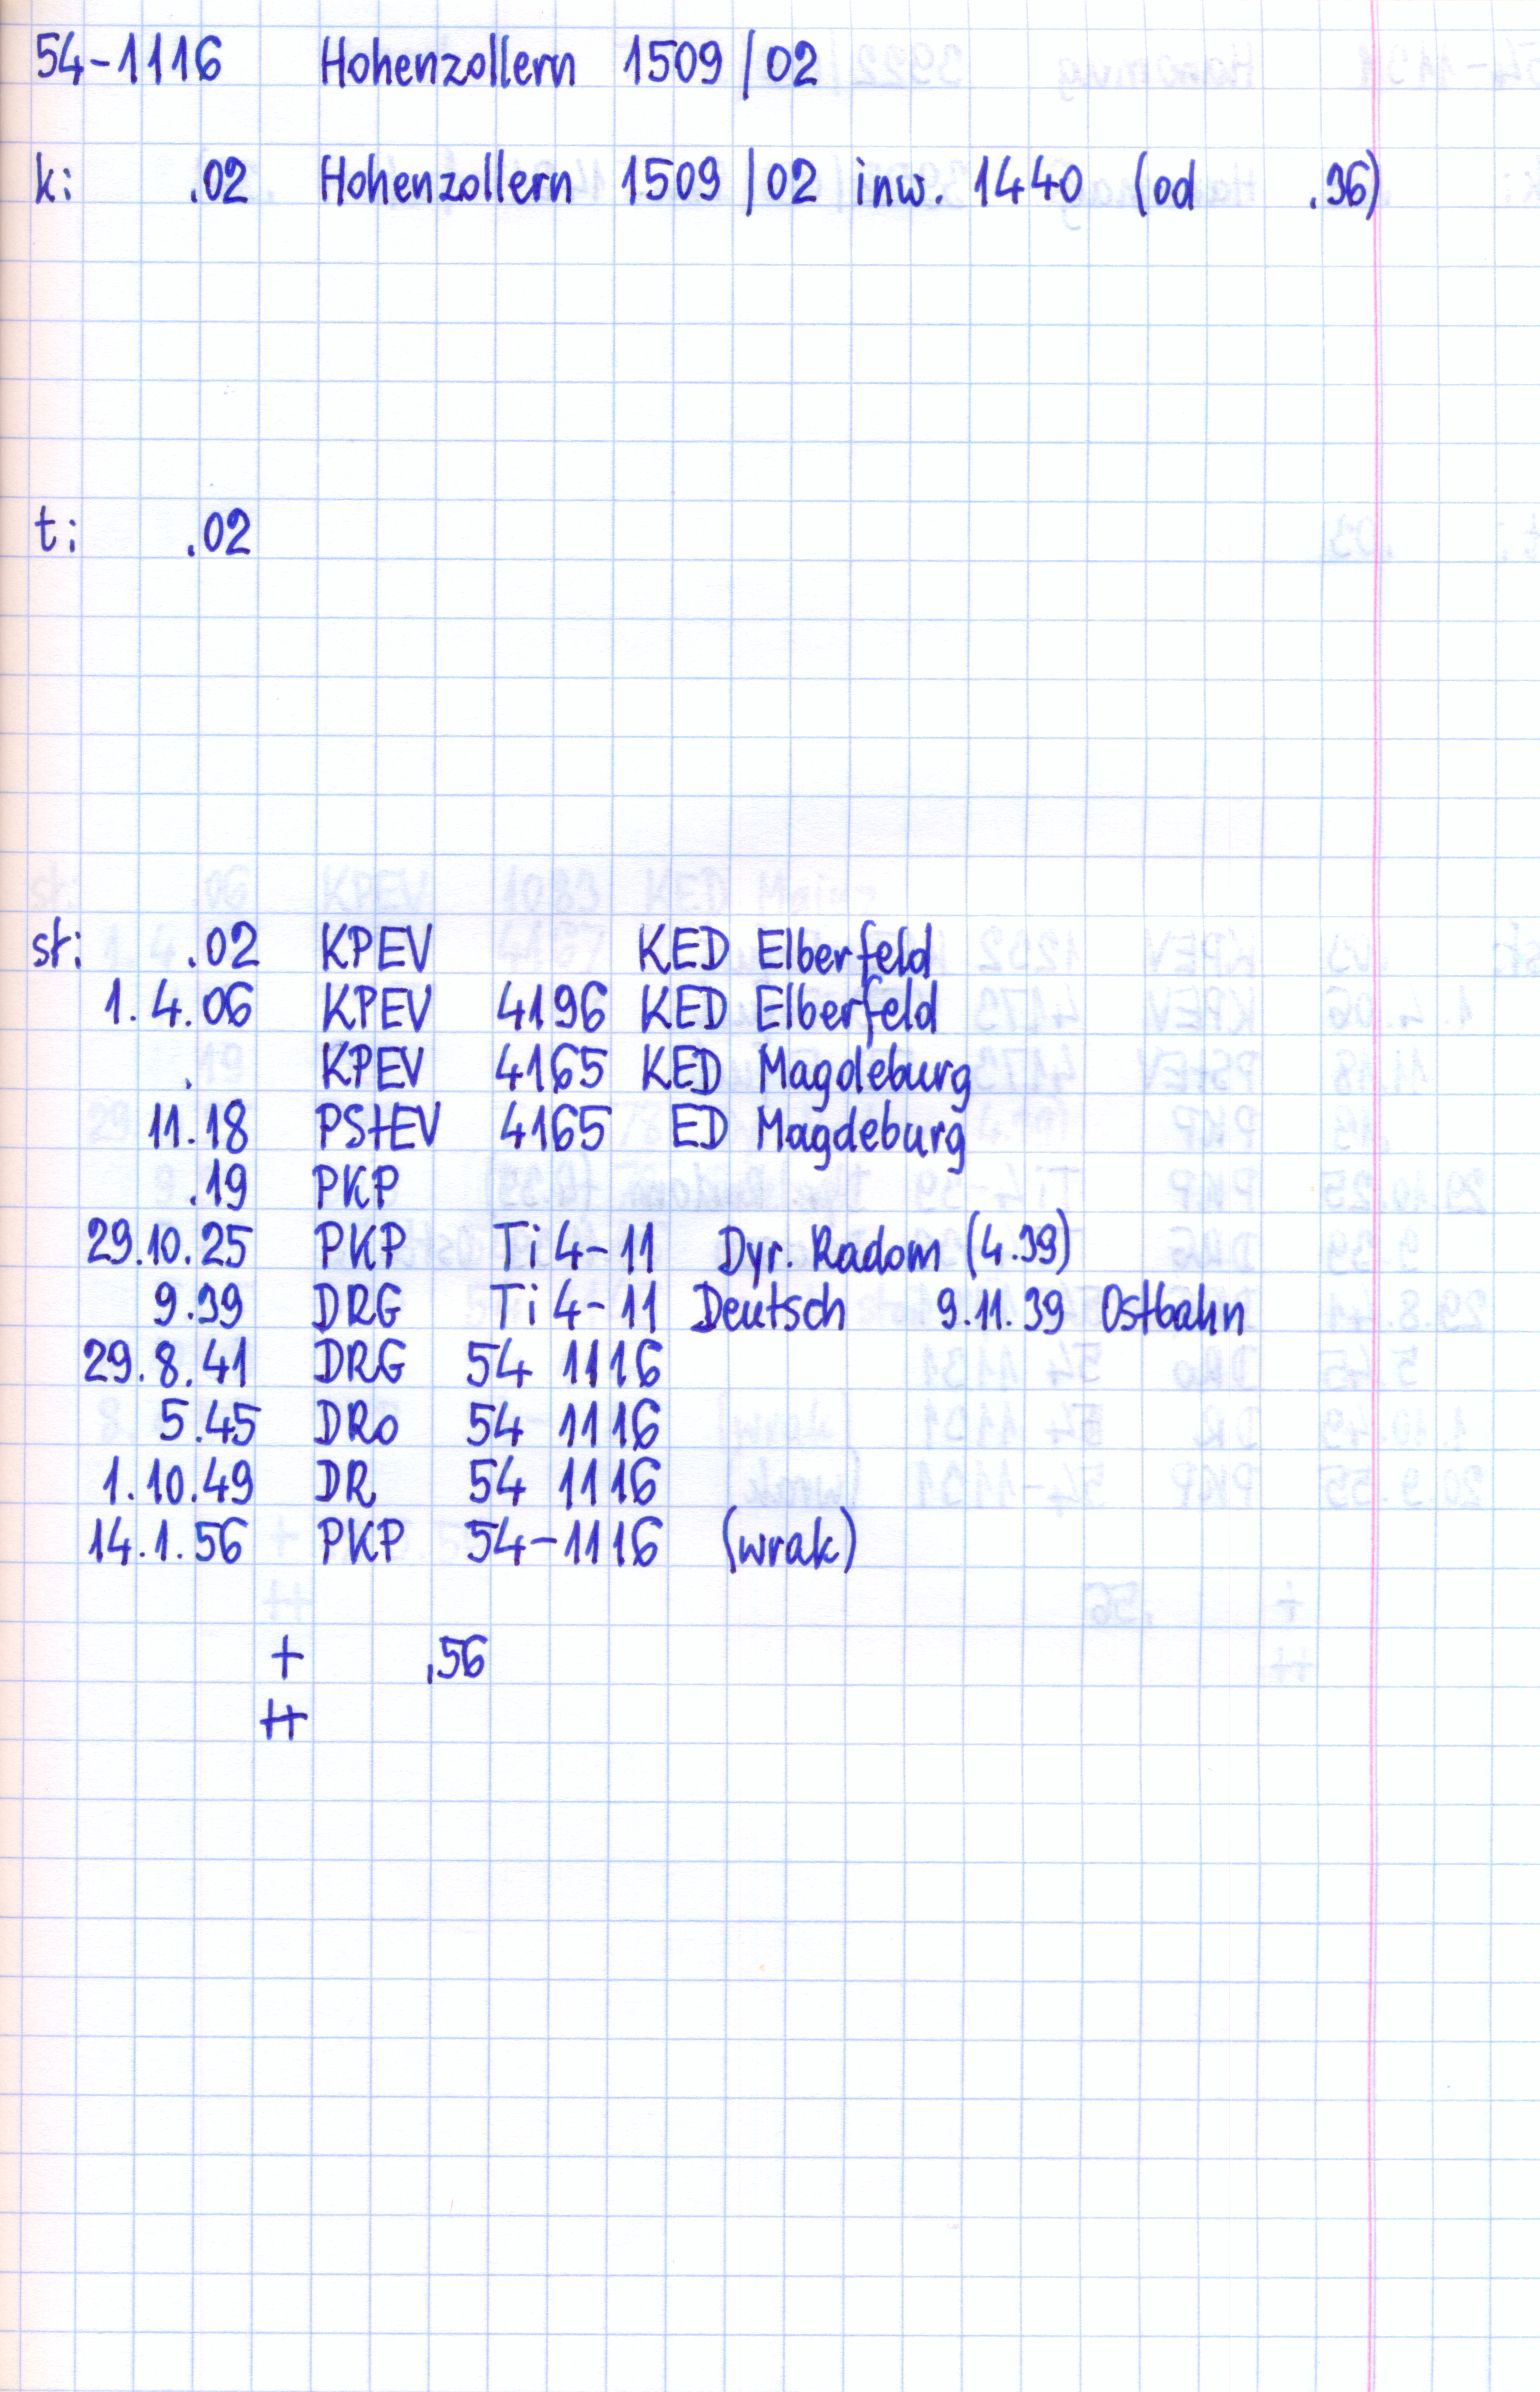 54-1116 Hohenzollern 1509/02
k: .02 Hohenzollern 1509/02 inw. 1440 (od .36)
t: .02
st: .02 KPEV KED Elberfeld
1.4.06 KPEV 4196 KED Elberfeld
. KPEV 4165 KED Magdeburg
11.18 PStEV 4165 ED Magdeburg
.19 PKP
29.10.25 PKP Ti 4-11 Dyr. Radom (4.39)
9.39 DRG Ti 4-11 Deutsch 9.11.39 Ostbahn
29.8.41 DRG 54 1116
5.45 DRo 54 1116
1.10.49 DR 54 1116
14.1.56 PKP 54-1116 (wrak)
+ .56
++